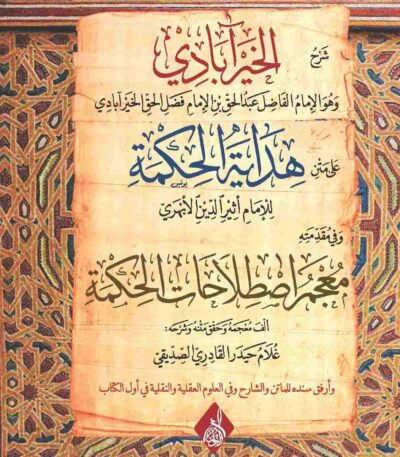 شَرْحُ
الخَيْرآبَادِي
وَهُوَ الإِمَامُ الفَاضِل عَبْدُ الحَقِّ بْنِ الإِمَامِ فَضْلِ الحَقِّ الخَيْرآبَادِي
عَلَى مَتْنِ
هِدَايَةُ الْحِكْمَةِ
لِلإِمَامِ أَثِيْرِ الدِّيْنِ الأَبْهَرِي
وَفِي مُقَدِّمَتِهِ
مُعْجَمُ اصْطِلَاحَاتِ الْحِكْمَةِ
أَلَّفَ مُعْجَمَهُ وَحَقَّقَ مَتْنَهُ وَشَرْحَهُ:
غُلَام حَيْدَر القَادِرِي الصِّدِّيْقِي
وأرفق سنده للماتن والشارح وفي العلوم العقلية والنقلية في أول الكتاب